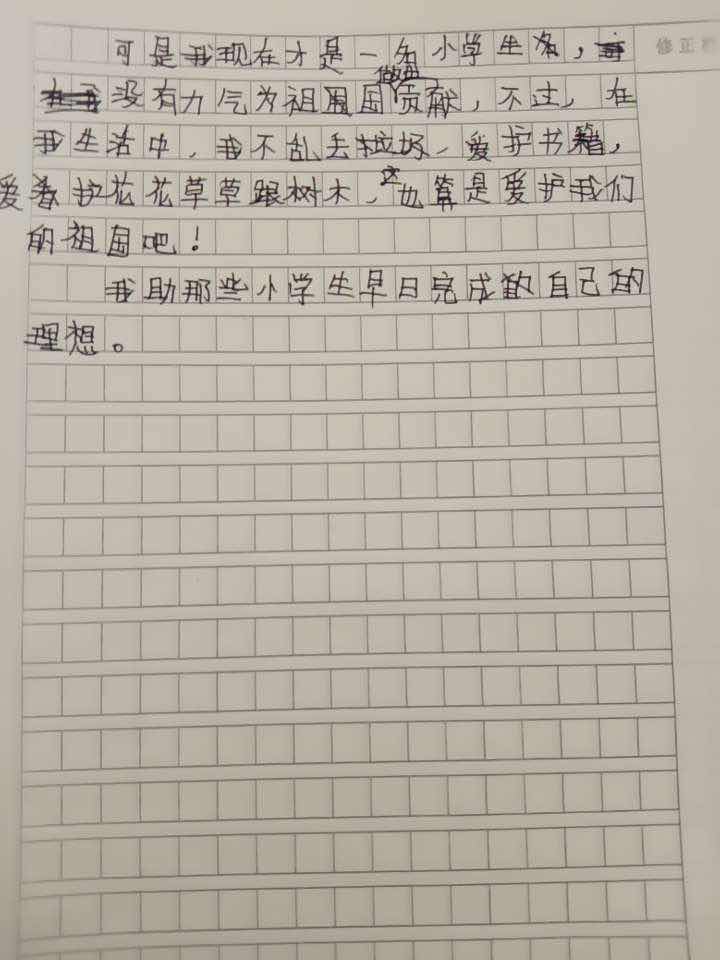 可是我现在才是一名小学生,
没有力气为祖国做出贡献,不过,在
我生活中,我不乱丢垃圾、爱护书籍,
爱护花花草草跟树木,这也算是爱护我们
的祖国吧!
我助那些小学生早日完成自己的
理想。